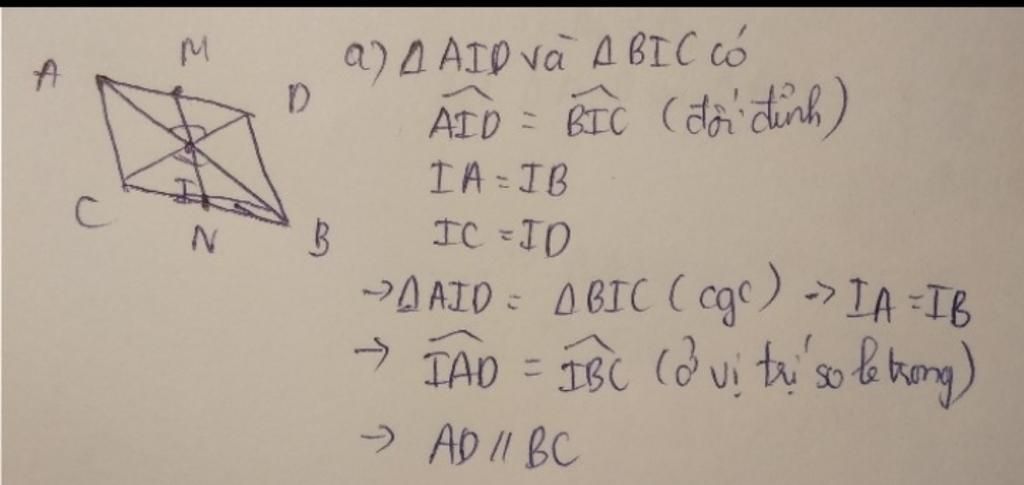 A
M
D
I
C
N
B
a) ΔAID và ΔBIC có
$\widehat{AID}$ = $\widehat{BIC}$ (đối đỉnh)
IA = IB
IC = ID
→ΔAID = ΔBIC (cgc) → IA = IB
→ $\widehat{IAD}$ = $\widehat{IBC}$ (ở vị trí so le trong)
→ AD // BC